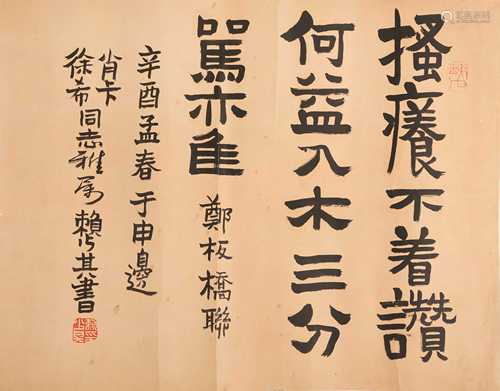 搔癢不着讚
何益入木三分
罵亦隹
鄭板橋聯
辛酉孟春于申邊
肖卡
徐希同志雅属 賴少其書